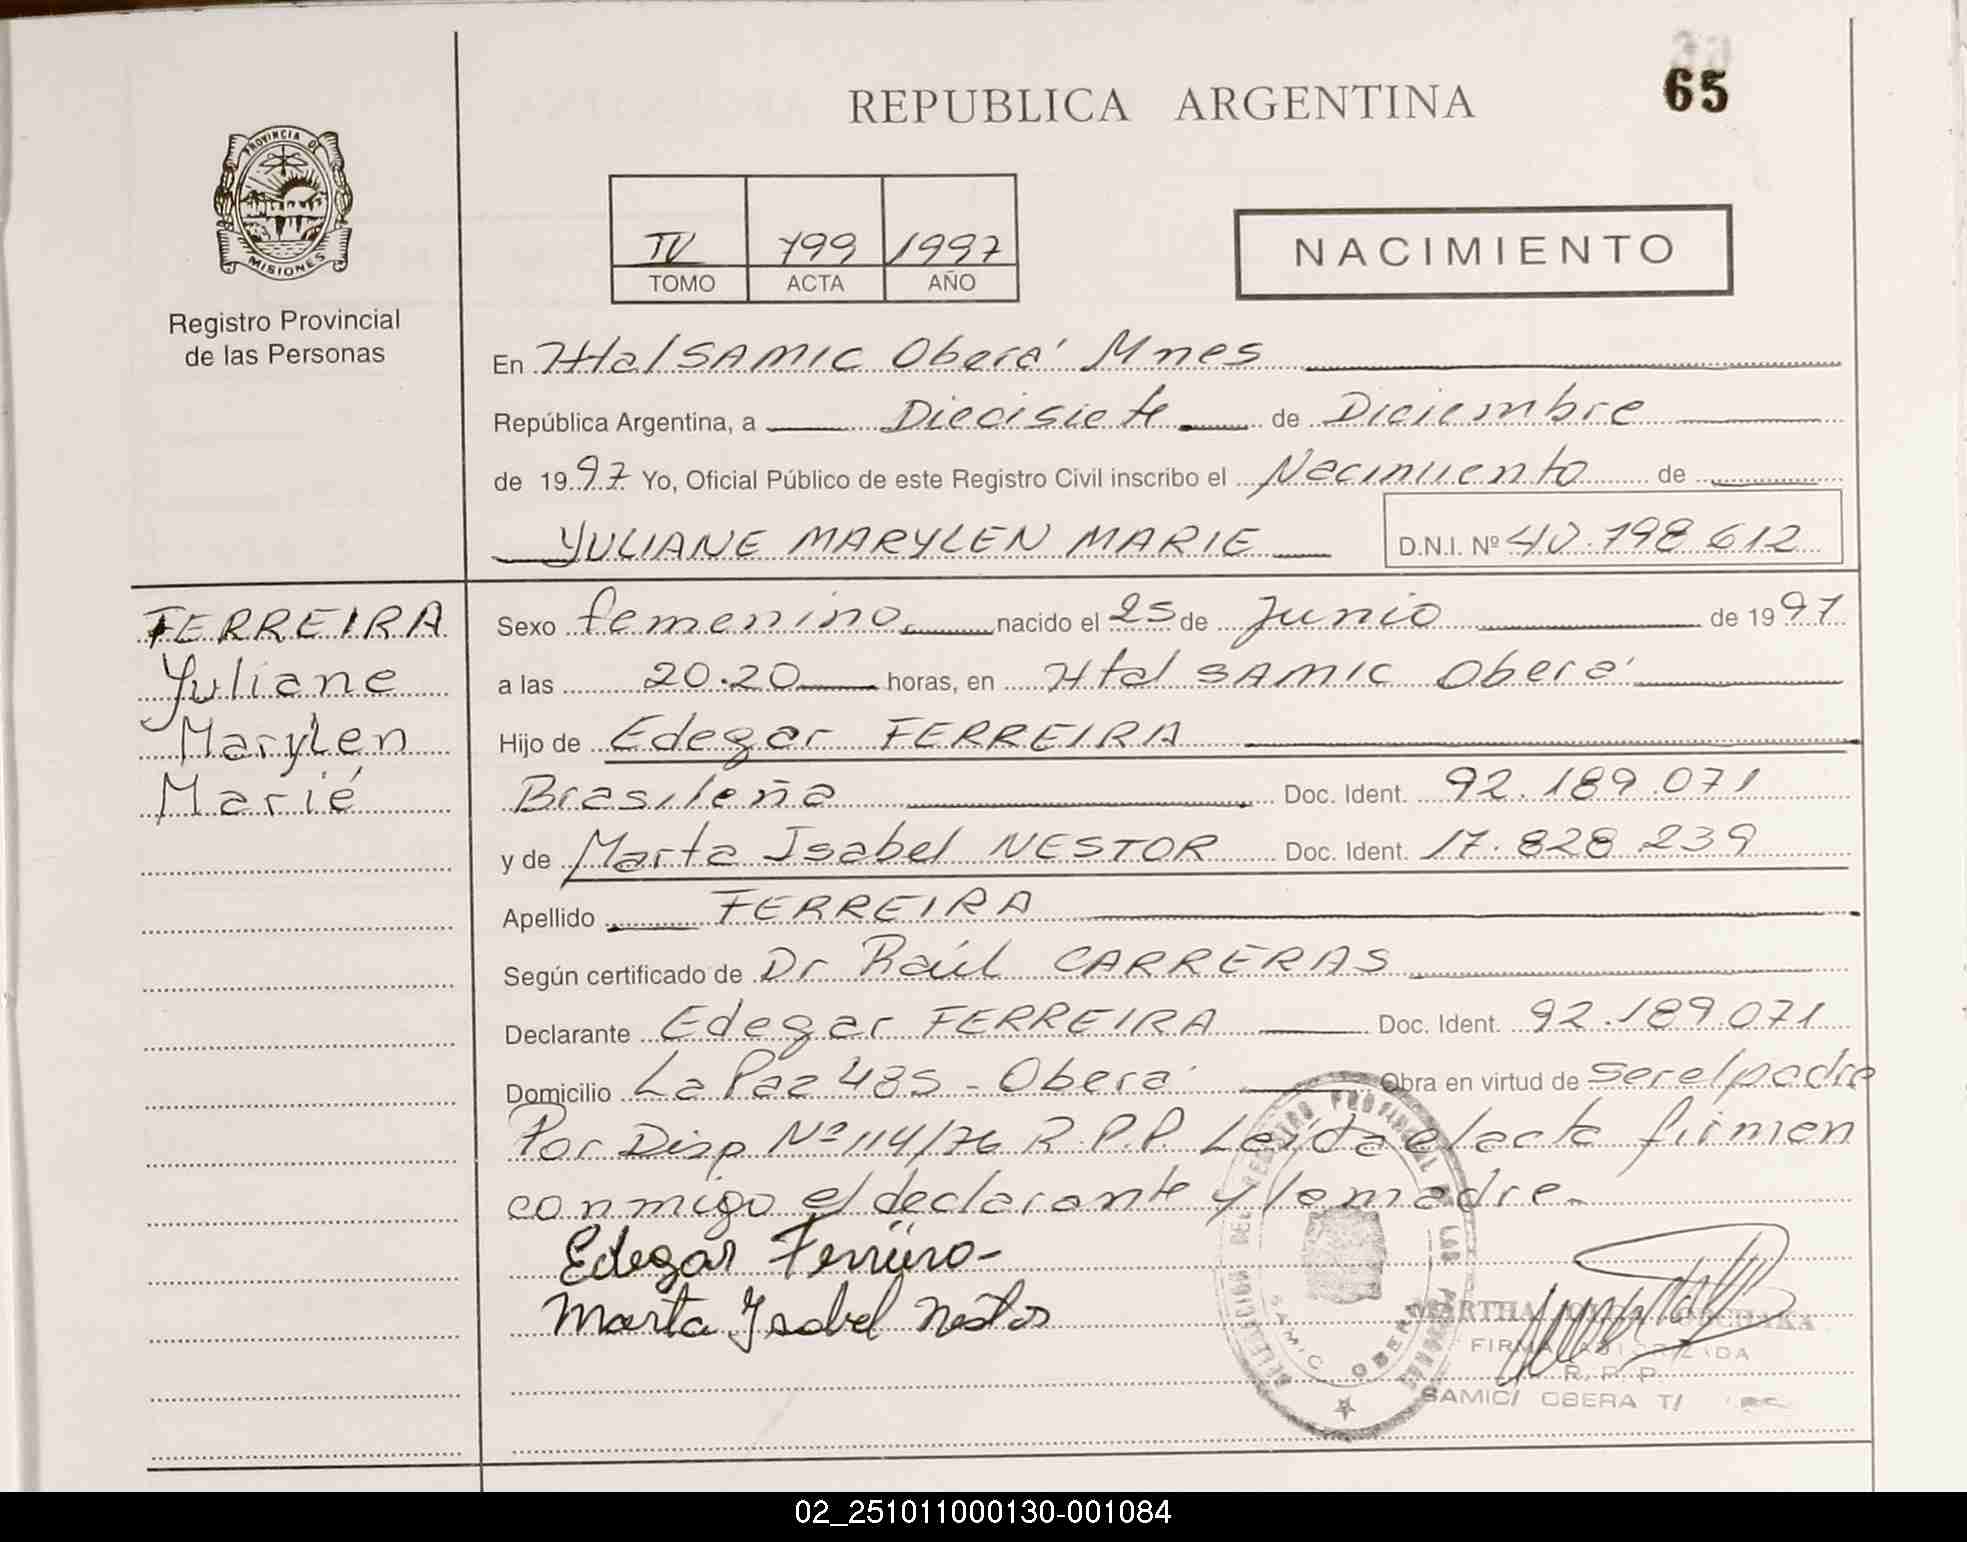 65
REPUBLICA ARGENTINA
PROVINCIA DE
MISIONES
Registro Provincial
de las Personas
IV 799 1997
TOMO ACTA AÑO
NACIMIENTO
En Htal SAMIC Oberá Mnes
República Argentina, a Diecisiete de Diciembre
de 1997 Yo, Oficial Público de este Registro Civil inscribo el Nacimiento de
YULIANE MARYLEN MARIE D.N.I. Nº 40.798.612
FERREIRA
Yuliane
Marylen
Marié
Sexo femenino nacido el 25 de Junio de 1997
a las 20.20 horas, en Htal SAMIC Oberá
Hijo de Edegar FERREIRA
Brasileña Doc. Ident. 92.189.071
y de Marta Isabel NESTOR Doc. Ident. 17.828.239
Apellido FERREIRA
Según certificado de Dr Raúl CARRERAS
Declarante Edegar FERREIRA Doc. Ident. 92.189.071
Domicilio La Paz 485 - Oberá Obra en virtud de ser el padre
Por Disp Nº 114/76 R.P.P. Leída el acta firman
conmigo el declarante y la madre-
Edegar
Marta Ysabel Nestor
DELEGACION DEL REGISTRO PROVINCIAL DE LAS PERSONAS
SAMIC OBERA
MARTHA
FIRMA AUTORIZADA
R. P. P.
SAMIC/ OBERA T/
02_251011000130-001084